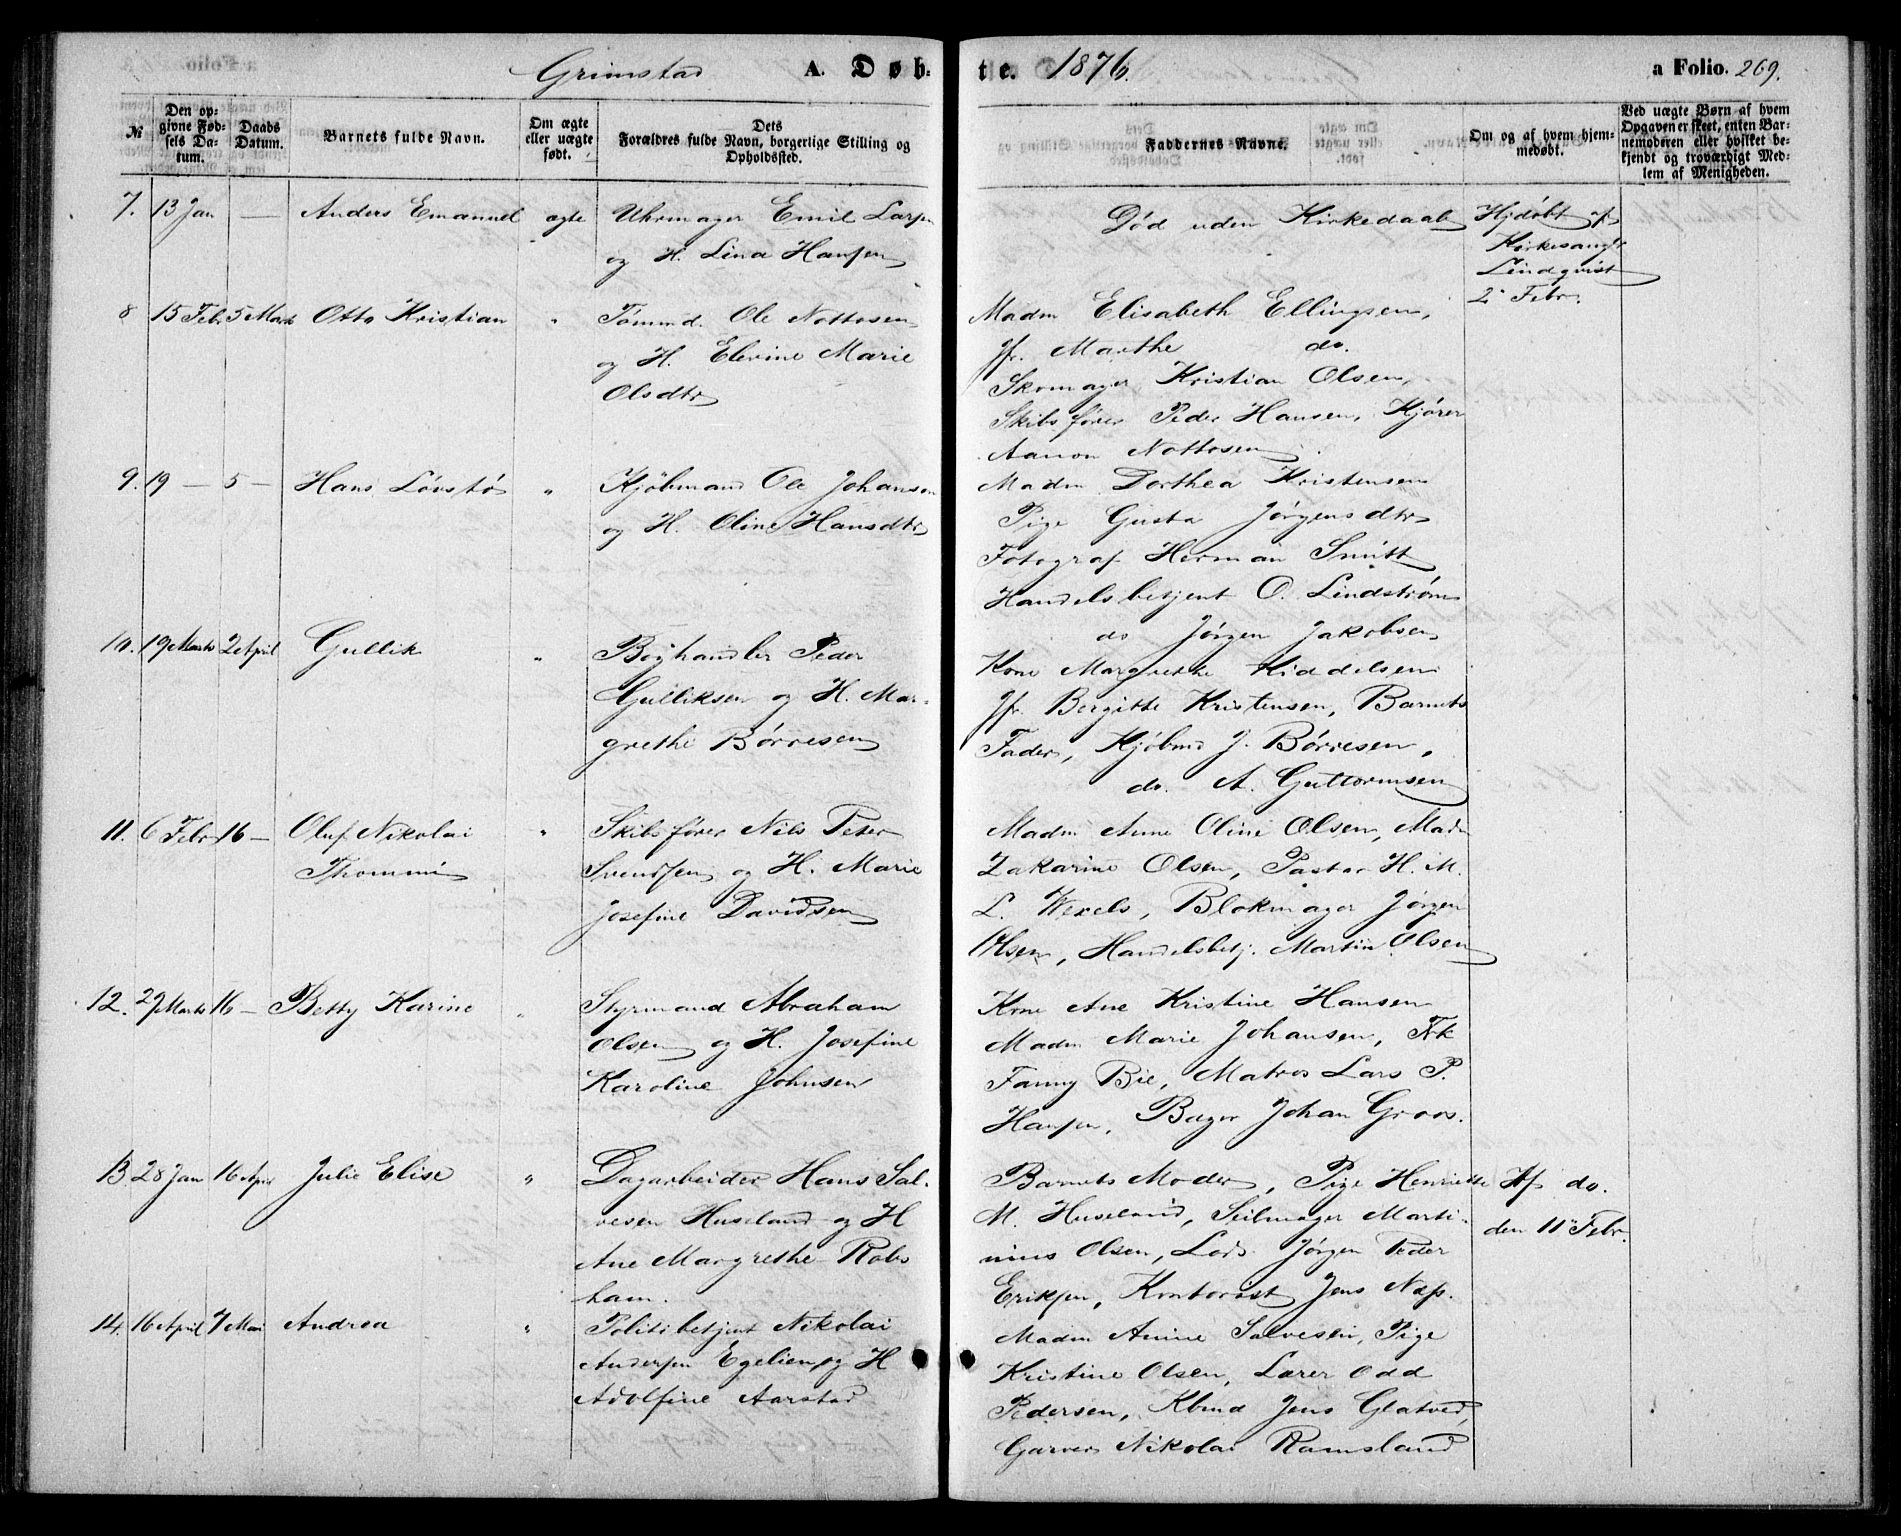 Grimstad A. Døb-
te. 1876. a Folio. 269.
№
Den opgivne Fødsels Datum.
Daabs Datum.
Barnets fulde Navn.
Om ægte eller uægte født.
Dets Forældres fulde Navn, borgerlige Stilling og Opholdssted.
Faddernes Navne.
Om og af hvem hjemmedøbt.
Ved uægte Børn af hvem Opgaven er skeet, enten Barnemoderen eller hvilket bekjendt og troværdigt Medlem af Menigheden.
7. 13 Jan — Anders Emanuel ægte Uhrmager Emil Larsen
og H. Lina Hansen
Død uden Kirkedaab
Hjdøbt af
Kirkesang
Lindqvist
2 Febr.
8 15 Febr 5 Marts Otto Kristian " Tømmd. Ole Nottosen
og H. Elevine Marie
Olsdtr
Madm Elisabeth Ellingsen,
Jfr. Marthe do.
Skomager Kristian Olsen,
Skibsfører Peder Hansen, Kjører
Aanon Nottosen
9. 19 — 5 — Hans Løvstø " Kjøbmand Ole Johansen
og H. Oline Hansdtr
Madm Dorthea Kristensen
Pige Gusta Jørgensdtr
Fotograf Herman Smitt
Handelsbetjent O. Lindstrøm
do Jørgen Jakobsen
10. 19 Marts 2 April Gullik " Boghandler Peder
Gulliksen og H. Mar-
grethe Børresen
Kone Margrethe Kiddelsen
Jfr. Bergitte Kristensen, Barnets
Fader, Kjøbmd J. Børresen,
do. A. Guttormsen
11. 6 Febr 16 — Oluf Nikolai
Thommi
" Skibsfører Nils Peter
Svendsen og H. Marie
Josefine Davidsen
Madm Anne Oline Olsen, Madm
Zakarine Olsen, Pastor H. M.
L. Wexels, Blokmager Jørgen
Olsen, Handelsbetj. Martin Olsen
12. 29 Marts 16 — Betty Karine " Styrmand Abraham
Olsen og H. Josefine
Karoline Johnsen
Kone Ane Kristine Hansen
Madm Marie Johansen, Frk
Fanny Bie, Matros Lars P.
Hansen, Bager Johan Groos.
13 28 Jan 16 April Julie Elise " Dagarbeider Hans Sal-
vesen Huseland og H
Ane Margrethe Robs
ham.
Barnets Moder, Pige Henriette
M. Huseland, Seilmager Marti-
nius Olsen, Lods Jørgen Peder
Eriksen, Kontorist Jens Næss.
Af do.
den 11 Febr.
14. 16 April 7 Mai Andrea " Politibetjent Nikolai
Andersen Egelien og H
Adolfine Aarstad
Madm Amine Salvesen, Pige
Kristine Olsen, Lærer Odd
Pedersen, Kbmd Jens Glatved,
Garver Nikolai Ramsland